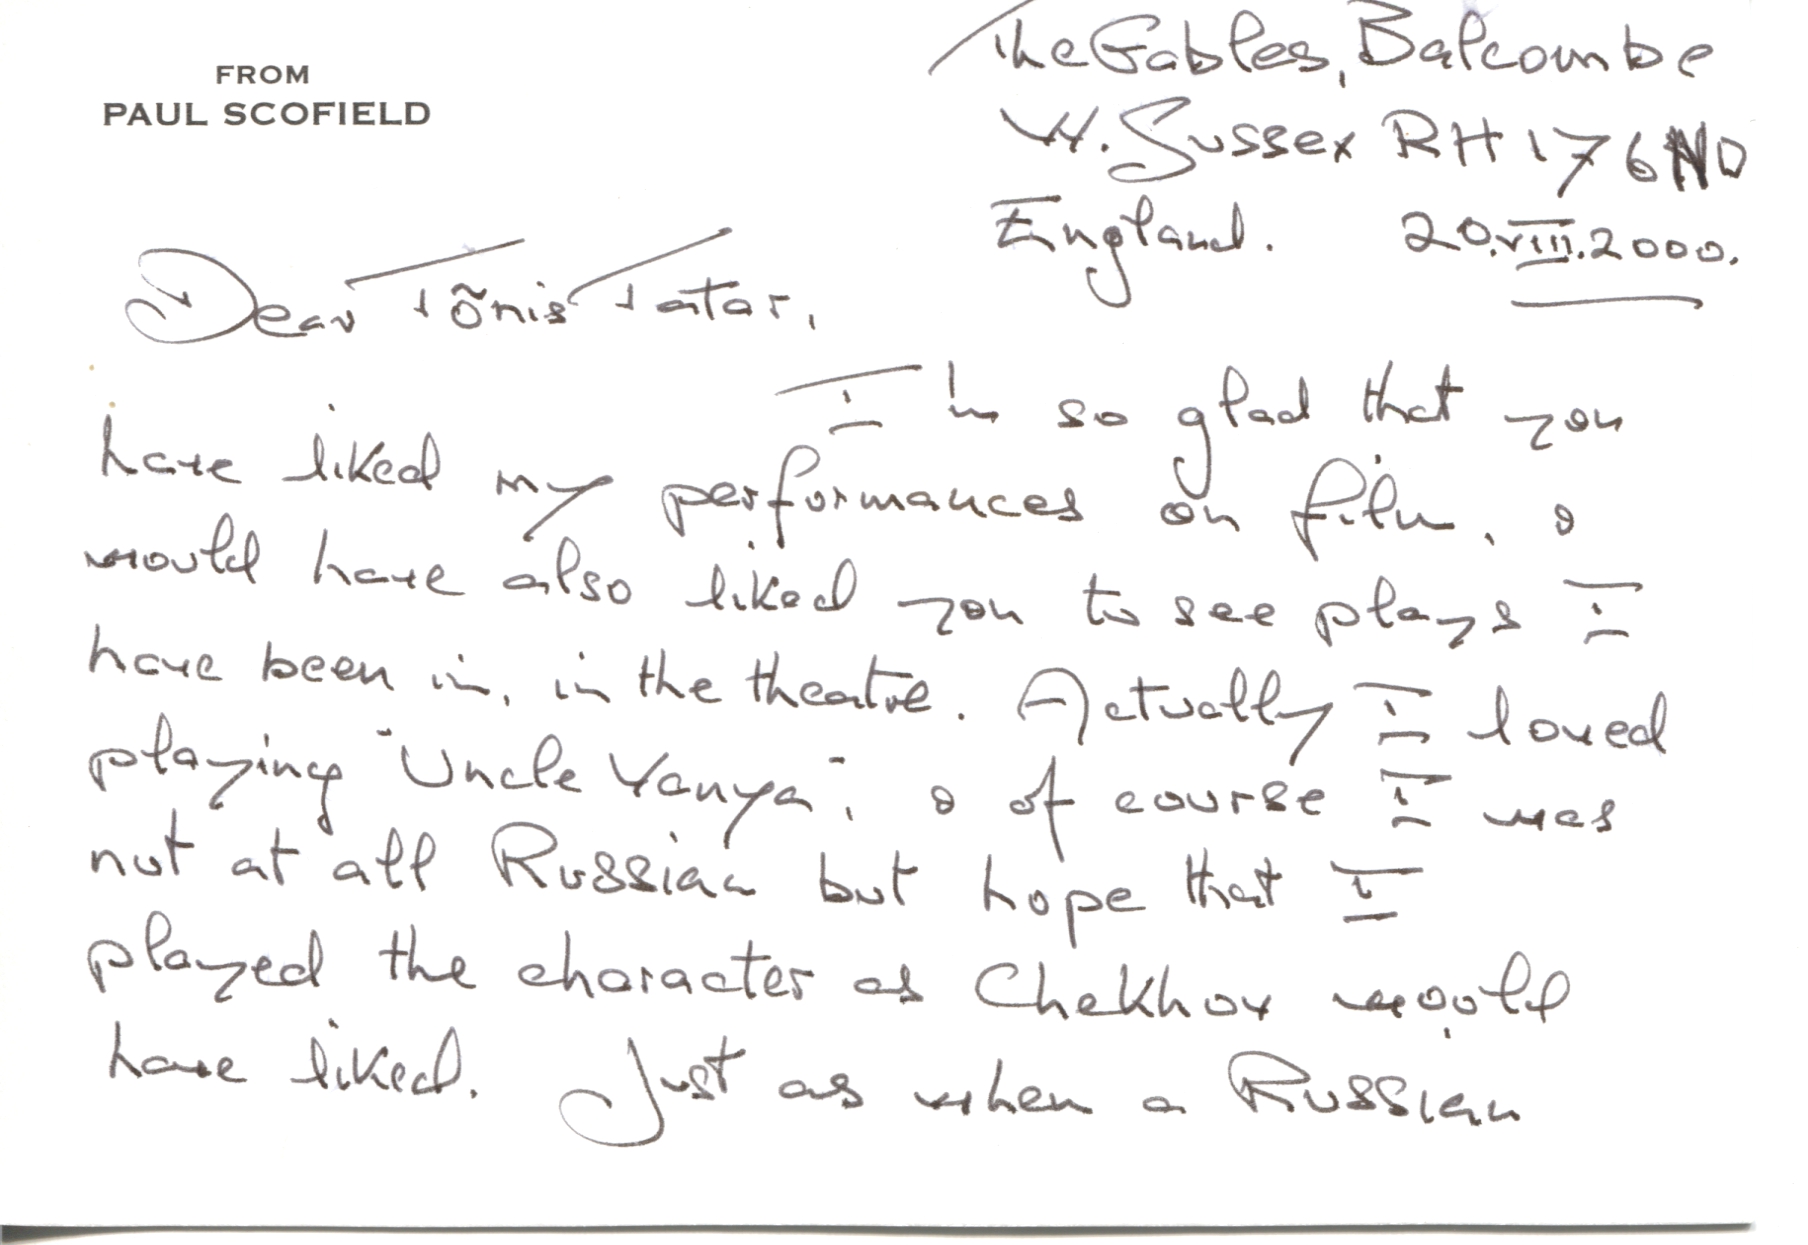 FROM
PAUL SCOFIELD
The Gables, Balcombe
W. Sussex RH17 6ND
England. 20.VIII.2000.
Dear Tõnis Tatar,
I'm so glad that you
have liked my performances on film, &
would have also liked you to see plays I
have been in, in the theatre. Actually I loved
playing "Uncle Vanya", & of course I was
not at all Russian but hope that I
played the character as Chekhov would
have liked. Just as when a Russian